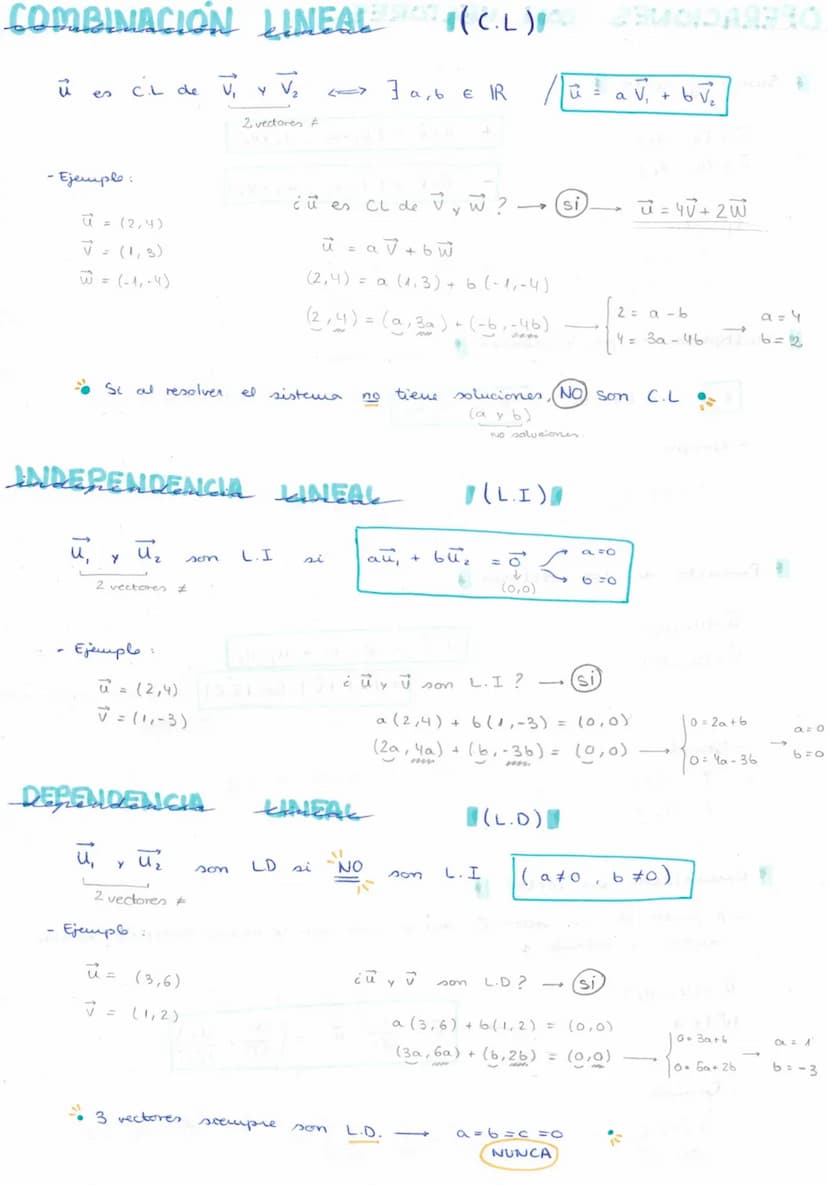 COMBINACIÓN LINEAL (C.L)
u⃗ es C.L de V₁⃗ y V₂⃗ ⟺ ∃ a,b ∈ ℝ / u⃗ = a V₁⃗ + b V₂⃗
2 vectores ≠
- Ejemplo:
¿u⃗ es CL de V⃗ y W⃗? → sí → u⃗ = 4V⃗ + 2W⃗
u⃗ = (2,4)
u⃗ = a V⃗ + b W⃗
V⃗ = (1,3)
W⃗ = (-1,-4)
(2,4) = a (1,3) + b (-1,-4)
(2,4) = (a,3a) + (-b,-4b) → { 2 = a - b → a = 4
4 = 3a - 4b b = 2
Si al resolver el sistema no tiene soluciones, NO son C.L
(a y b)
no soluciones
INDEPENDENCIA LINEAL (L.I)
u₁⃗ y u₂⃗ son L.I si au₁⃗ + bu₂⃗ = 0⃗ a=0
b=0
2 vectores ≠ (0,0)
- Ejemplo:
u⃗ = (2,4) ¿u⃗ y v⃗ son L.I? → sí
v⃗ = (1,-3) a(2,4) + b(1,-3) = (0,0)
(2a,4a) + (b,-3b) = (0,0) → { 0 = 2a+b → a=0
0 = 4a-3b b=0
DEPENDENCIA LINEAL (L.D)
u₁⃗ y u₂⃗ son LD si NO son L.I (a≠0, b≠0)
2 vectores ≠
- Ejemplo:
u⃗ = (3,6) ¿u⃗ y v⃗ son L.D? → sí
v⃗ = (1,2)
a(3,6) + b(1,2) = (0,0)
(3a,6a) + (b,2b) = (0,0) → { 0 = 3a+b → a = 1
0 = 6a+2b b = -3
3 vectores siempre son L.D. → a=b=c=0
NUNCA